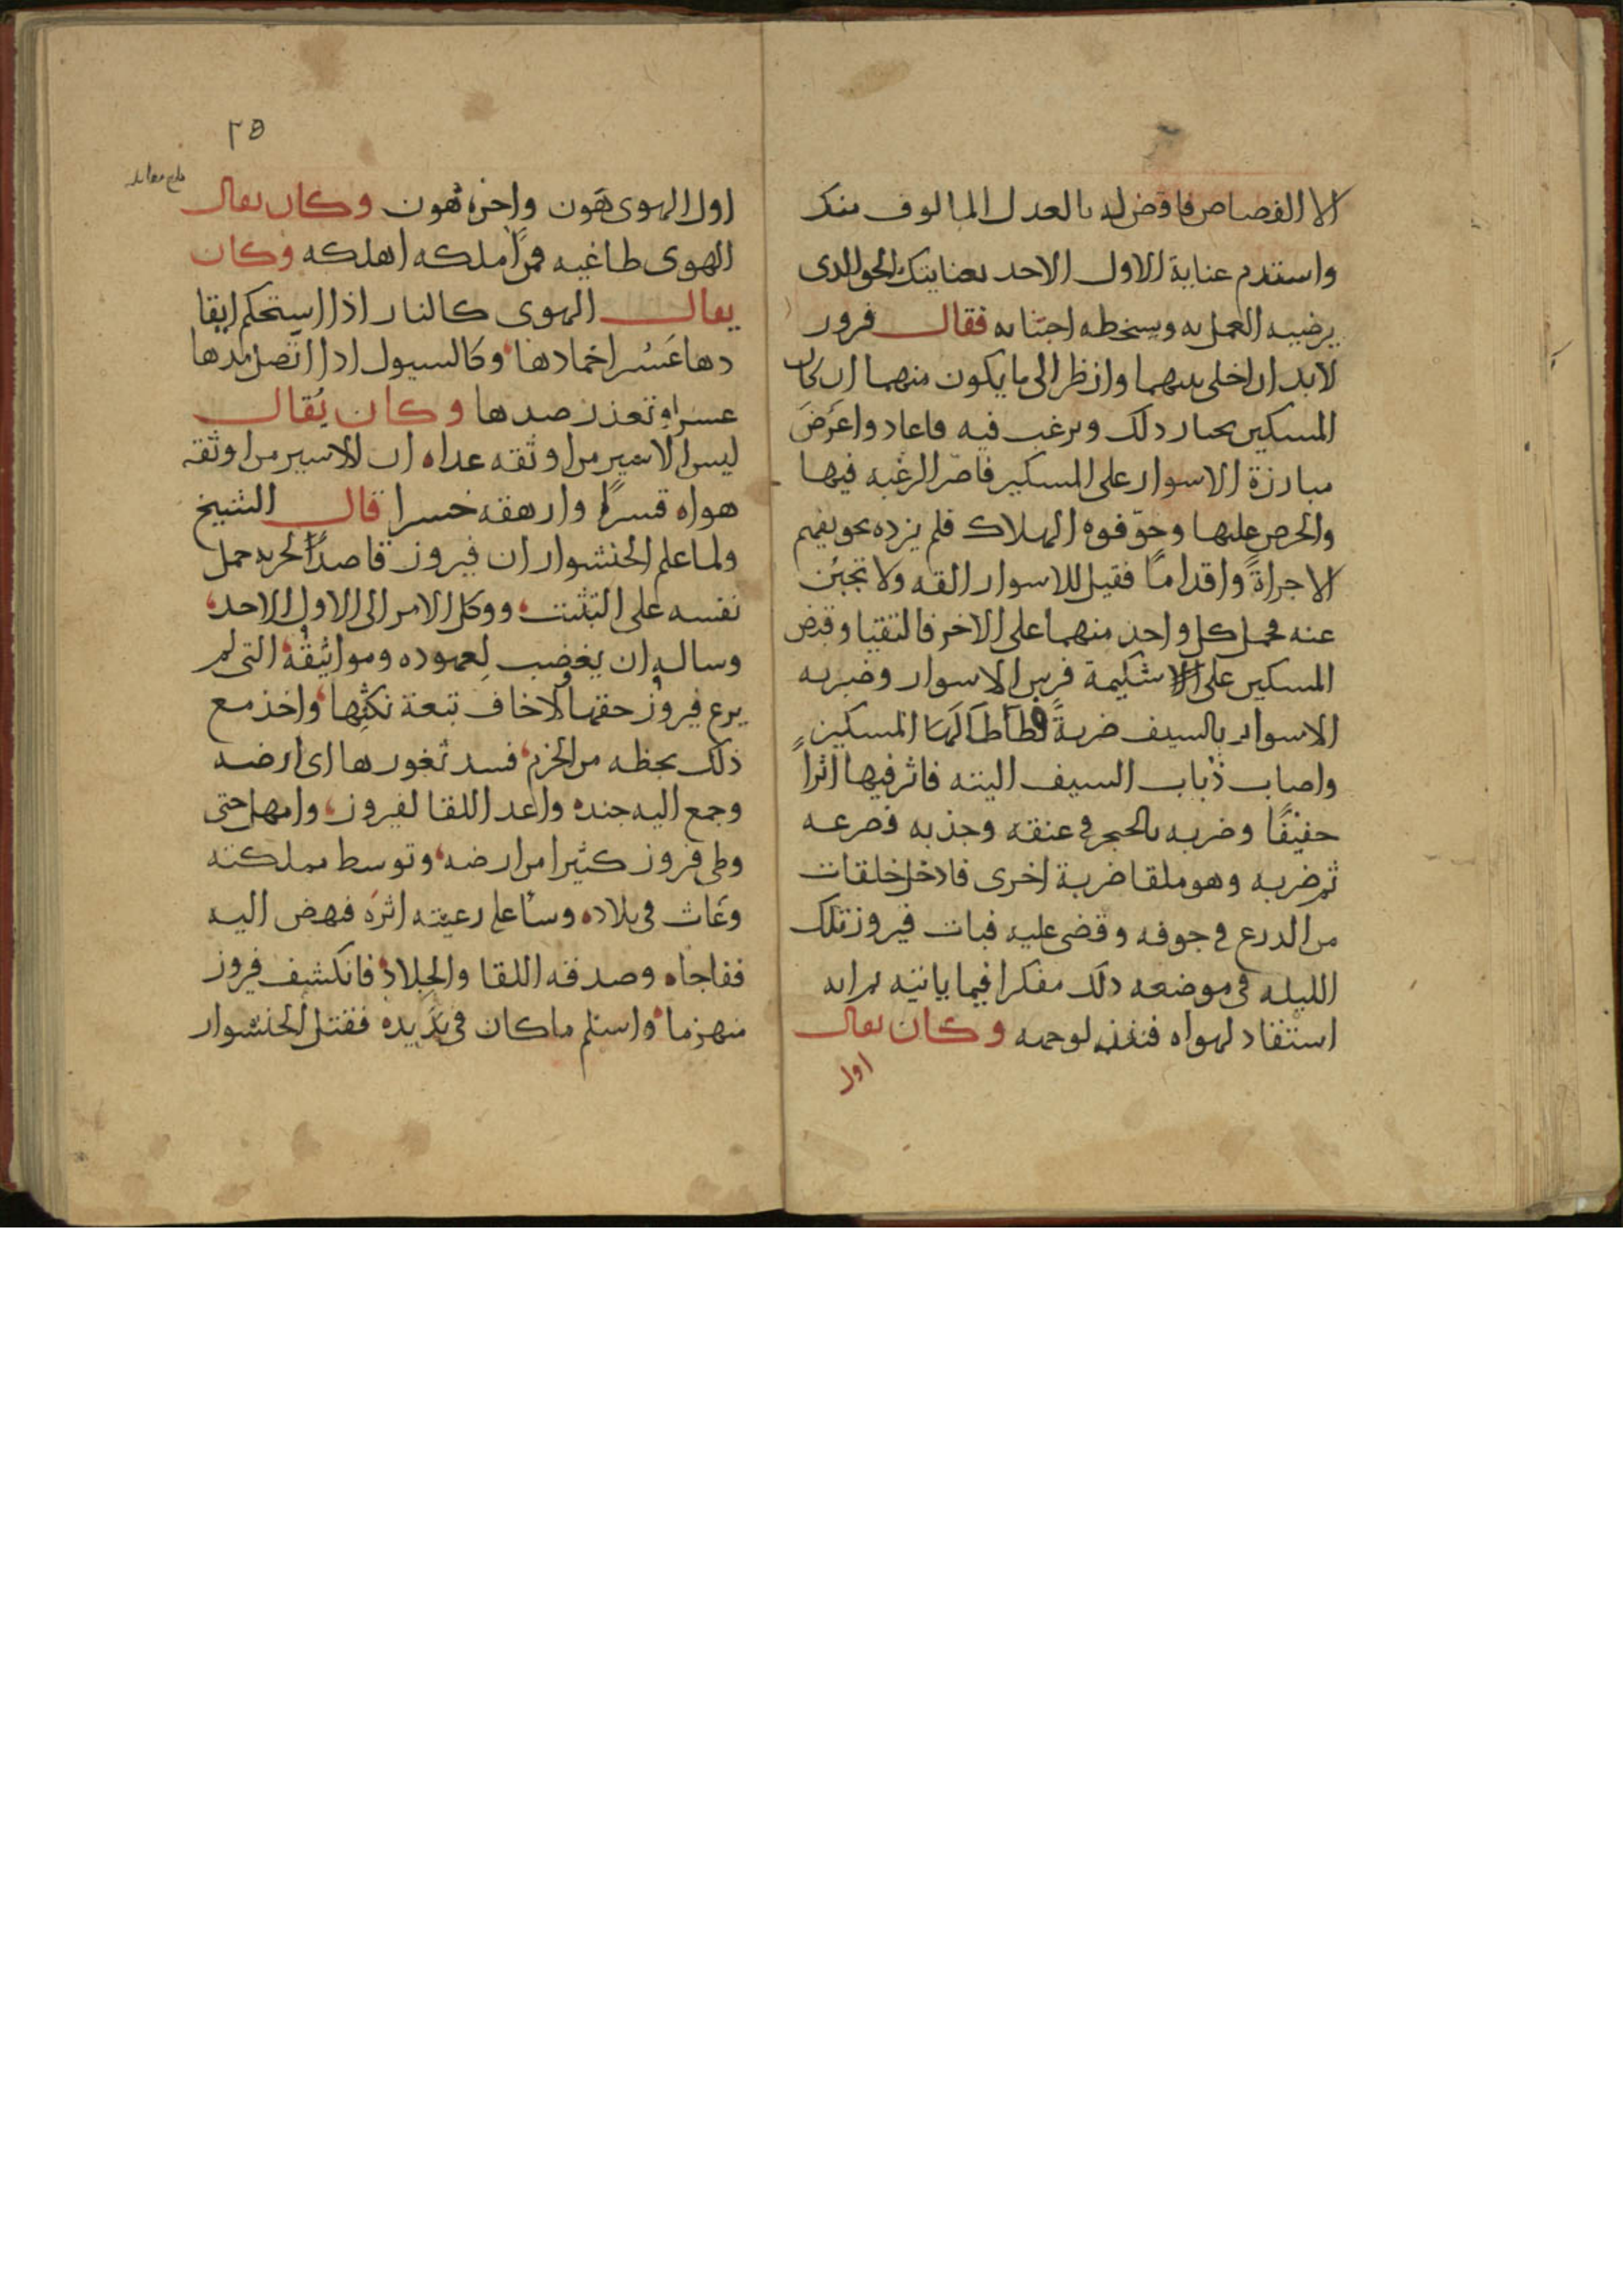 الا القصاص فاقض له بالعدل المالوف منك
واستدم عناية الاول الاحد بعنايتك بالحق الذى
يرضيه العمل به ويسخطه اجتنابه فقال فيروز
لابد ان اخلى بينهما وانظر الى ما يكون منهما ان كان
المسكين يختار ذلك ويرغب فيه فاعاد واعرض
مبارزة الاسوار على المسكين فاصر الرغبه فيها
والحرص عليها وخوفوه الهلاك فلم يزده تخويفهم
الا جراة واقداما فقيل للاسوار القه ولا تجبن
عنه فحمل كل واحد منهما على الاخر فالتقيا وقبض
المسكين على شكيمة فرس الاسوار وضربه
الاسوار بالسيف ضربةً فطاطا لها المسكين
واصاب ذباب السيف اليته فاثر فيها اثراً
خفيفًا وضربه بالحجر فى عنقه وجذبه فصرعه
ثم ضربه وهو ملقا ضربة اخرى فادخل حلقات
من الدرع فى جوفه وقضى عليه فبات فيروز تلك
الليله فى موضعه ذلك مفكرا فيما ياتيه ثم انه
استقاد لهواه فنفذ لوجهه وكان يقال
اول
٢٥
اول الهوى هَون واخره هُون وكان يقال
الهوى طاغيه فمن املكه اهلكه وكان
يقال الهوى كالنار اذا استحكم ايقا
دها عَسُر اخمادها وكالسيول اذا اتصل مدها
عسر وتعذر صدها وكان يُقال
ليس الاسير من اوثقه عداه ان الاسير من اوثقه
هواه قسرًا وارهقه خسرا قال الشيخ
ولما علم الخنشوار ان فيروز قاصدًا لحربه حمل
نفسه على التثبت ووكل الامر الى الاول الاحد
وساله ان يغضب لعهوده ومواثيقه التى لم
يرع فيروز حقها ولا خاف تبعة نكثها واخذ مع
ذلك بحظه من الحزم فسد ثغورها اى ارضه
وجمع اليه جنده واعد اللقا لفيروز وامهل حتى
وطى فروز كثيرا من ارضه وتوسط مملكته
وعَاث فى بلاده وسا على رعيته اثره فنهض اليه
ففاجاه وصدقه اللقا والجلاد فانكشف فيروز
منهزما واسلم ما كان فى يديه فقتل الخنشوار